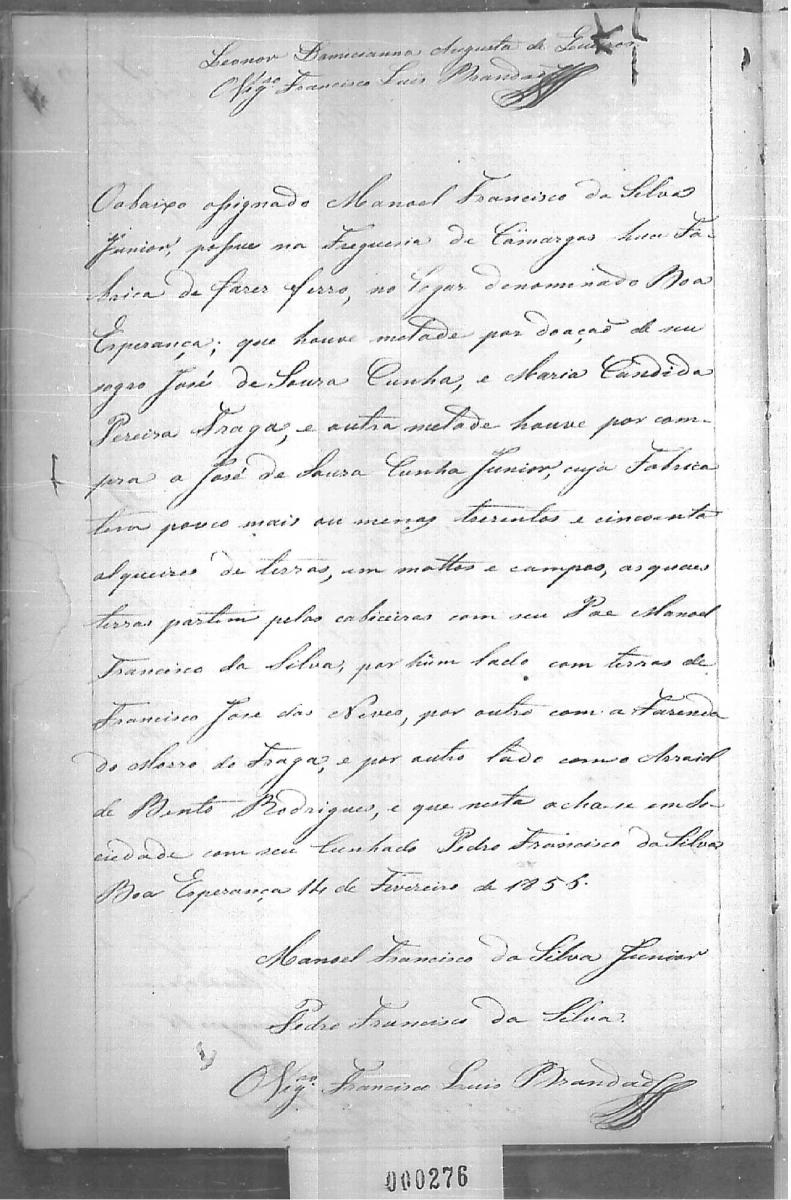 Leonor Damacianna Augusta de
O Vig.ro Francisco Luis Brandaõ
O abaixo assignado Manoel Francisco da Silva
Junior, possue na Freguesia de Camargos hua Fa-
brica de fazer ferro, no logar denominado Boa
Esperança; que houve metade por doaçaõ de seu
sogro José de Souza Cunha, e Maria Candida
Pereira Fraga, e outra metade houve por com-
pra a José de Souza Cunha Junior, cuja Fabrica
tem pouco mais ou menos trezentos e cincoenta
alqueires de terras, em mattos e campos, as quaes
terras partem pelas cabiceiras com seu Pae Manoel
Francisco da Silva, por hũm lado com terras de
Francisco José das Neves, por outro com a Fazenda
do Morro do Fraga, e por outro lado com o Arraial
de Bento Rodrigues, e que nesta acha-se em So-
ciedade com seu Cunhado Pedro Francisco da Silva
Boa Esperança 14 de Fevereiro de 1856.
Manoel Francisco da Silva Junior
Pedro Francisco da Silva.
O Vig.ro Francisco Luis Brandaõ
000276